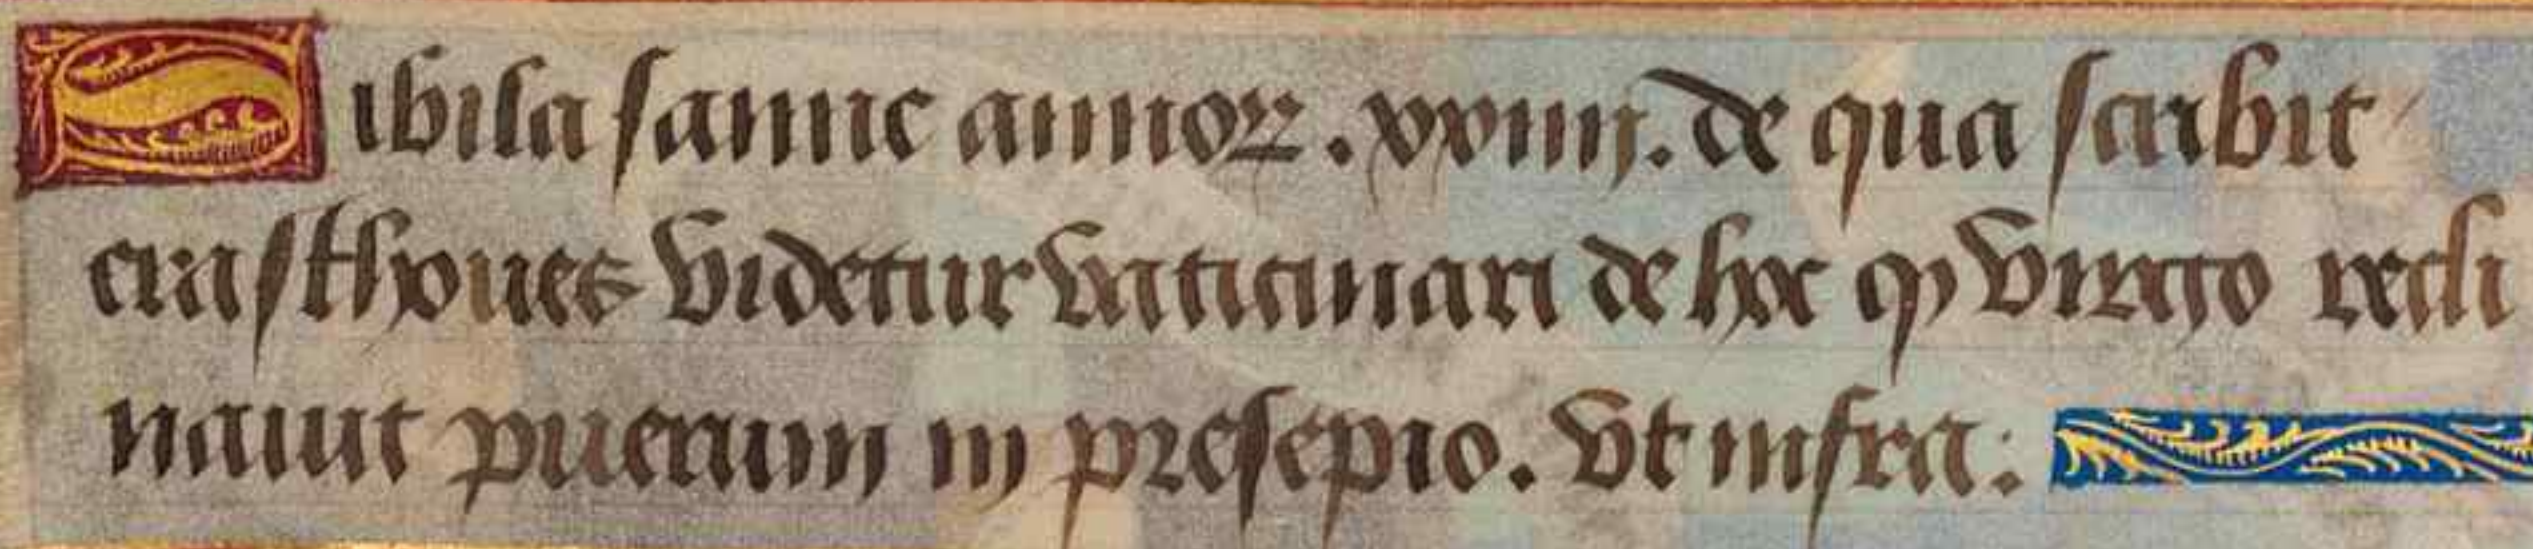 Sibila samie annoꝝ. xxiiij. de qua scribit
erasthones videtur vaticinari de hoc ꝙ virgo recli
nauit puerum in presepio. vt infra: